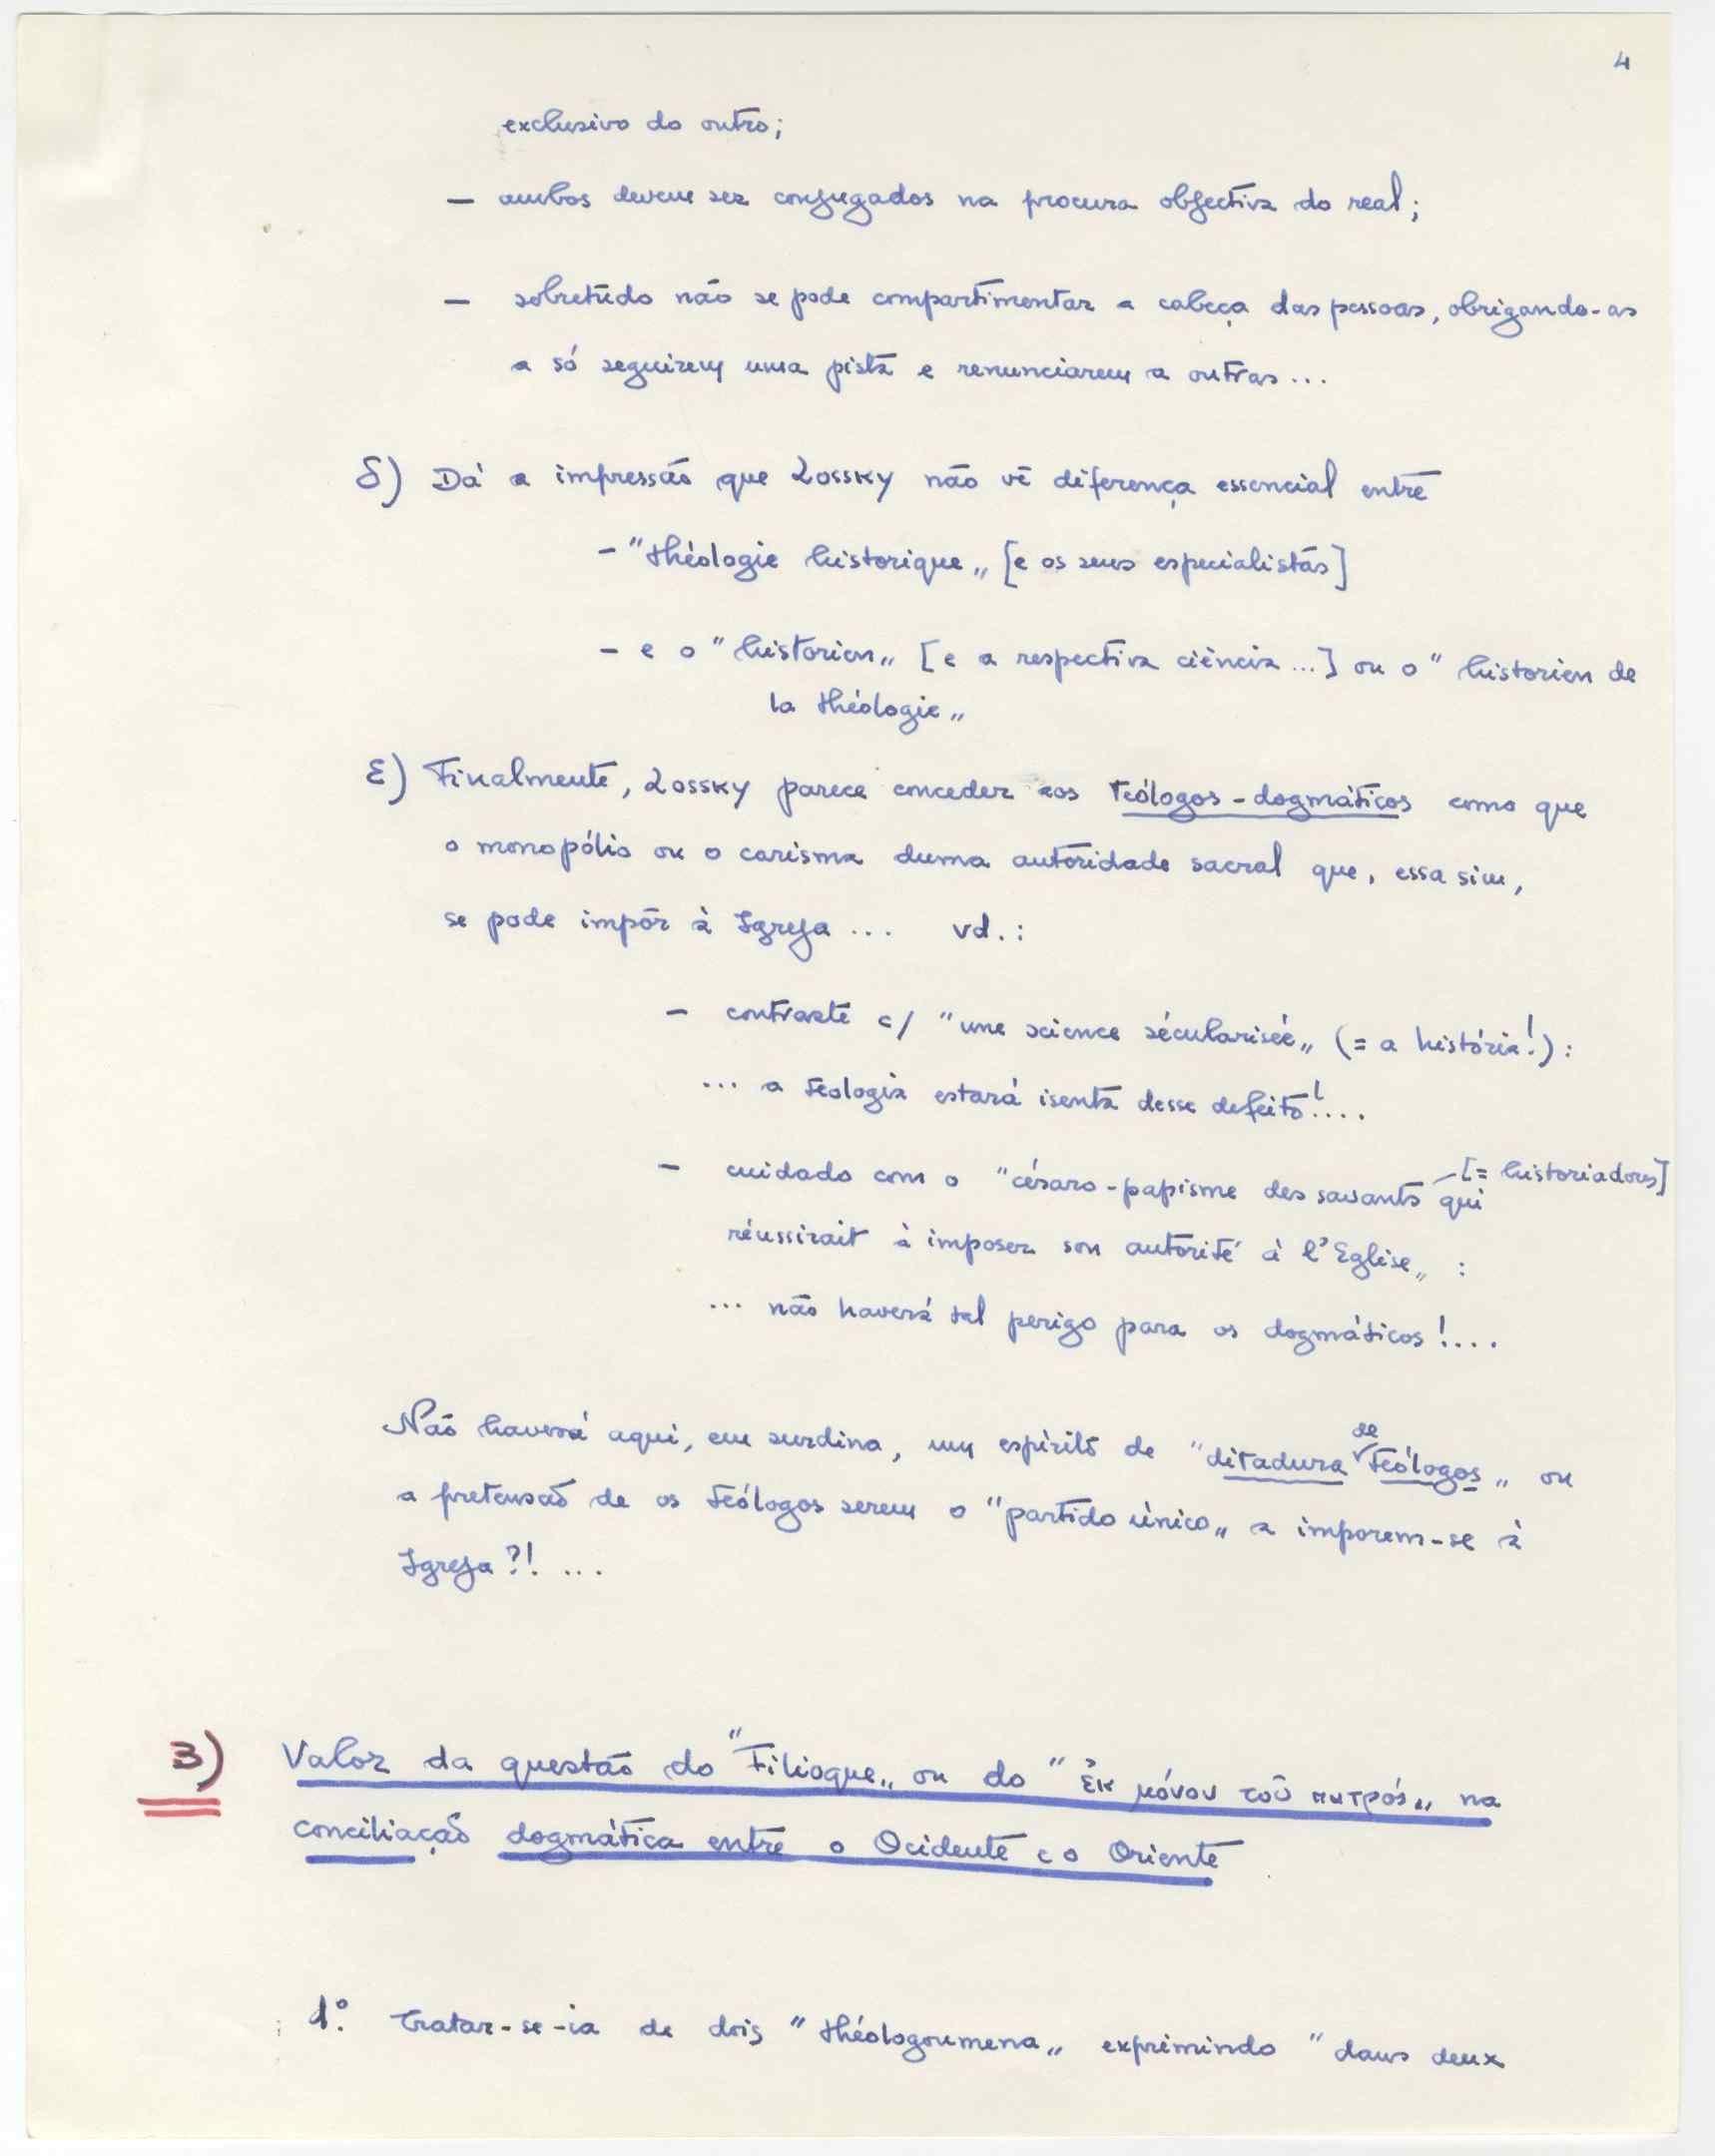 4
exclusivo do outro;
— ambos devem ser conjugados na procura objectiva do real;
— sobretudo não se pode compartimentar a cabeça das pessoas, obrigando-as
a só seguirem uma pista e renunciarem a outras ...
δ) Dá a impressão que Lossky não vê diferença essencial entre
- "théologie historique„ [e os seus especialistas]
- e o "historien„ [e a respectiva ciência ...] ou o "historien de
la théologie„
ε) Finalmente, Lossky parece conceder aos teólogos-dogmáticos como que
o monopólio ou o carisma duma autoridade sacral que, essa sim,
se pode impôr à Igreja ... vd.:
- contraste c/ "une science sécularisée„ (= a história!):
... a teologia estará isenta desse defeito!....
- cuidado com o "césaro-papisme des savants [= historiadores] qui
réussirait à imposer son autorité à l'Eglise„ :
... não haverá tal perigo para os dogmáticos!....
Não haverá aqui, em surdina, um espírito de "ditadura de teólogos„ ou
a pretensão de os teólogos serem o "partido único„ a imporem-se à
Igreja?! ...
3) Valor da questão do "Filioque„ ou do "ἐκ μόνου τοῦ πατρός„ na
conciliação dogmática entre o Ocidente e o Oriente
1º. Tratar-se-ia de dois "théologoumena„ exprimindo "dans deux